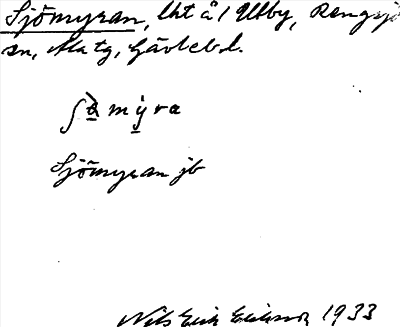 Sjömyran, Uht å / Ultby, Rengsjö
sn, Ala tg, Gävlebd.
ʃö̀ mýra
Sjömyran jb
Nils Erik Eriksson 1933